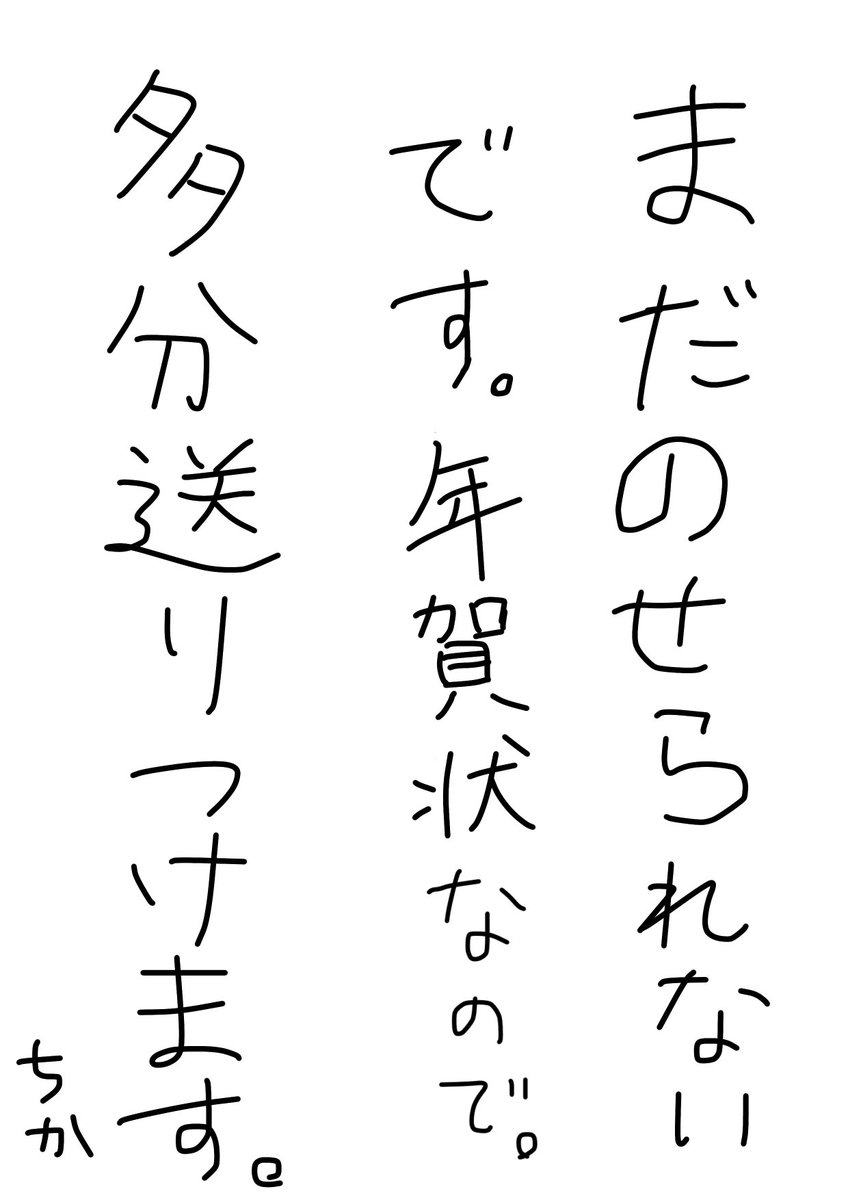 まだのせられない
です。年賀状なので。
多分送りつけます。
ちか